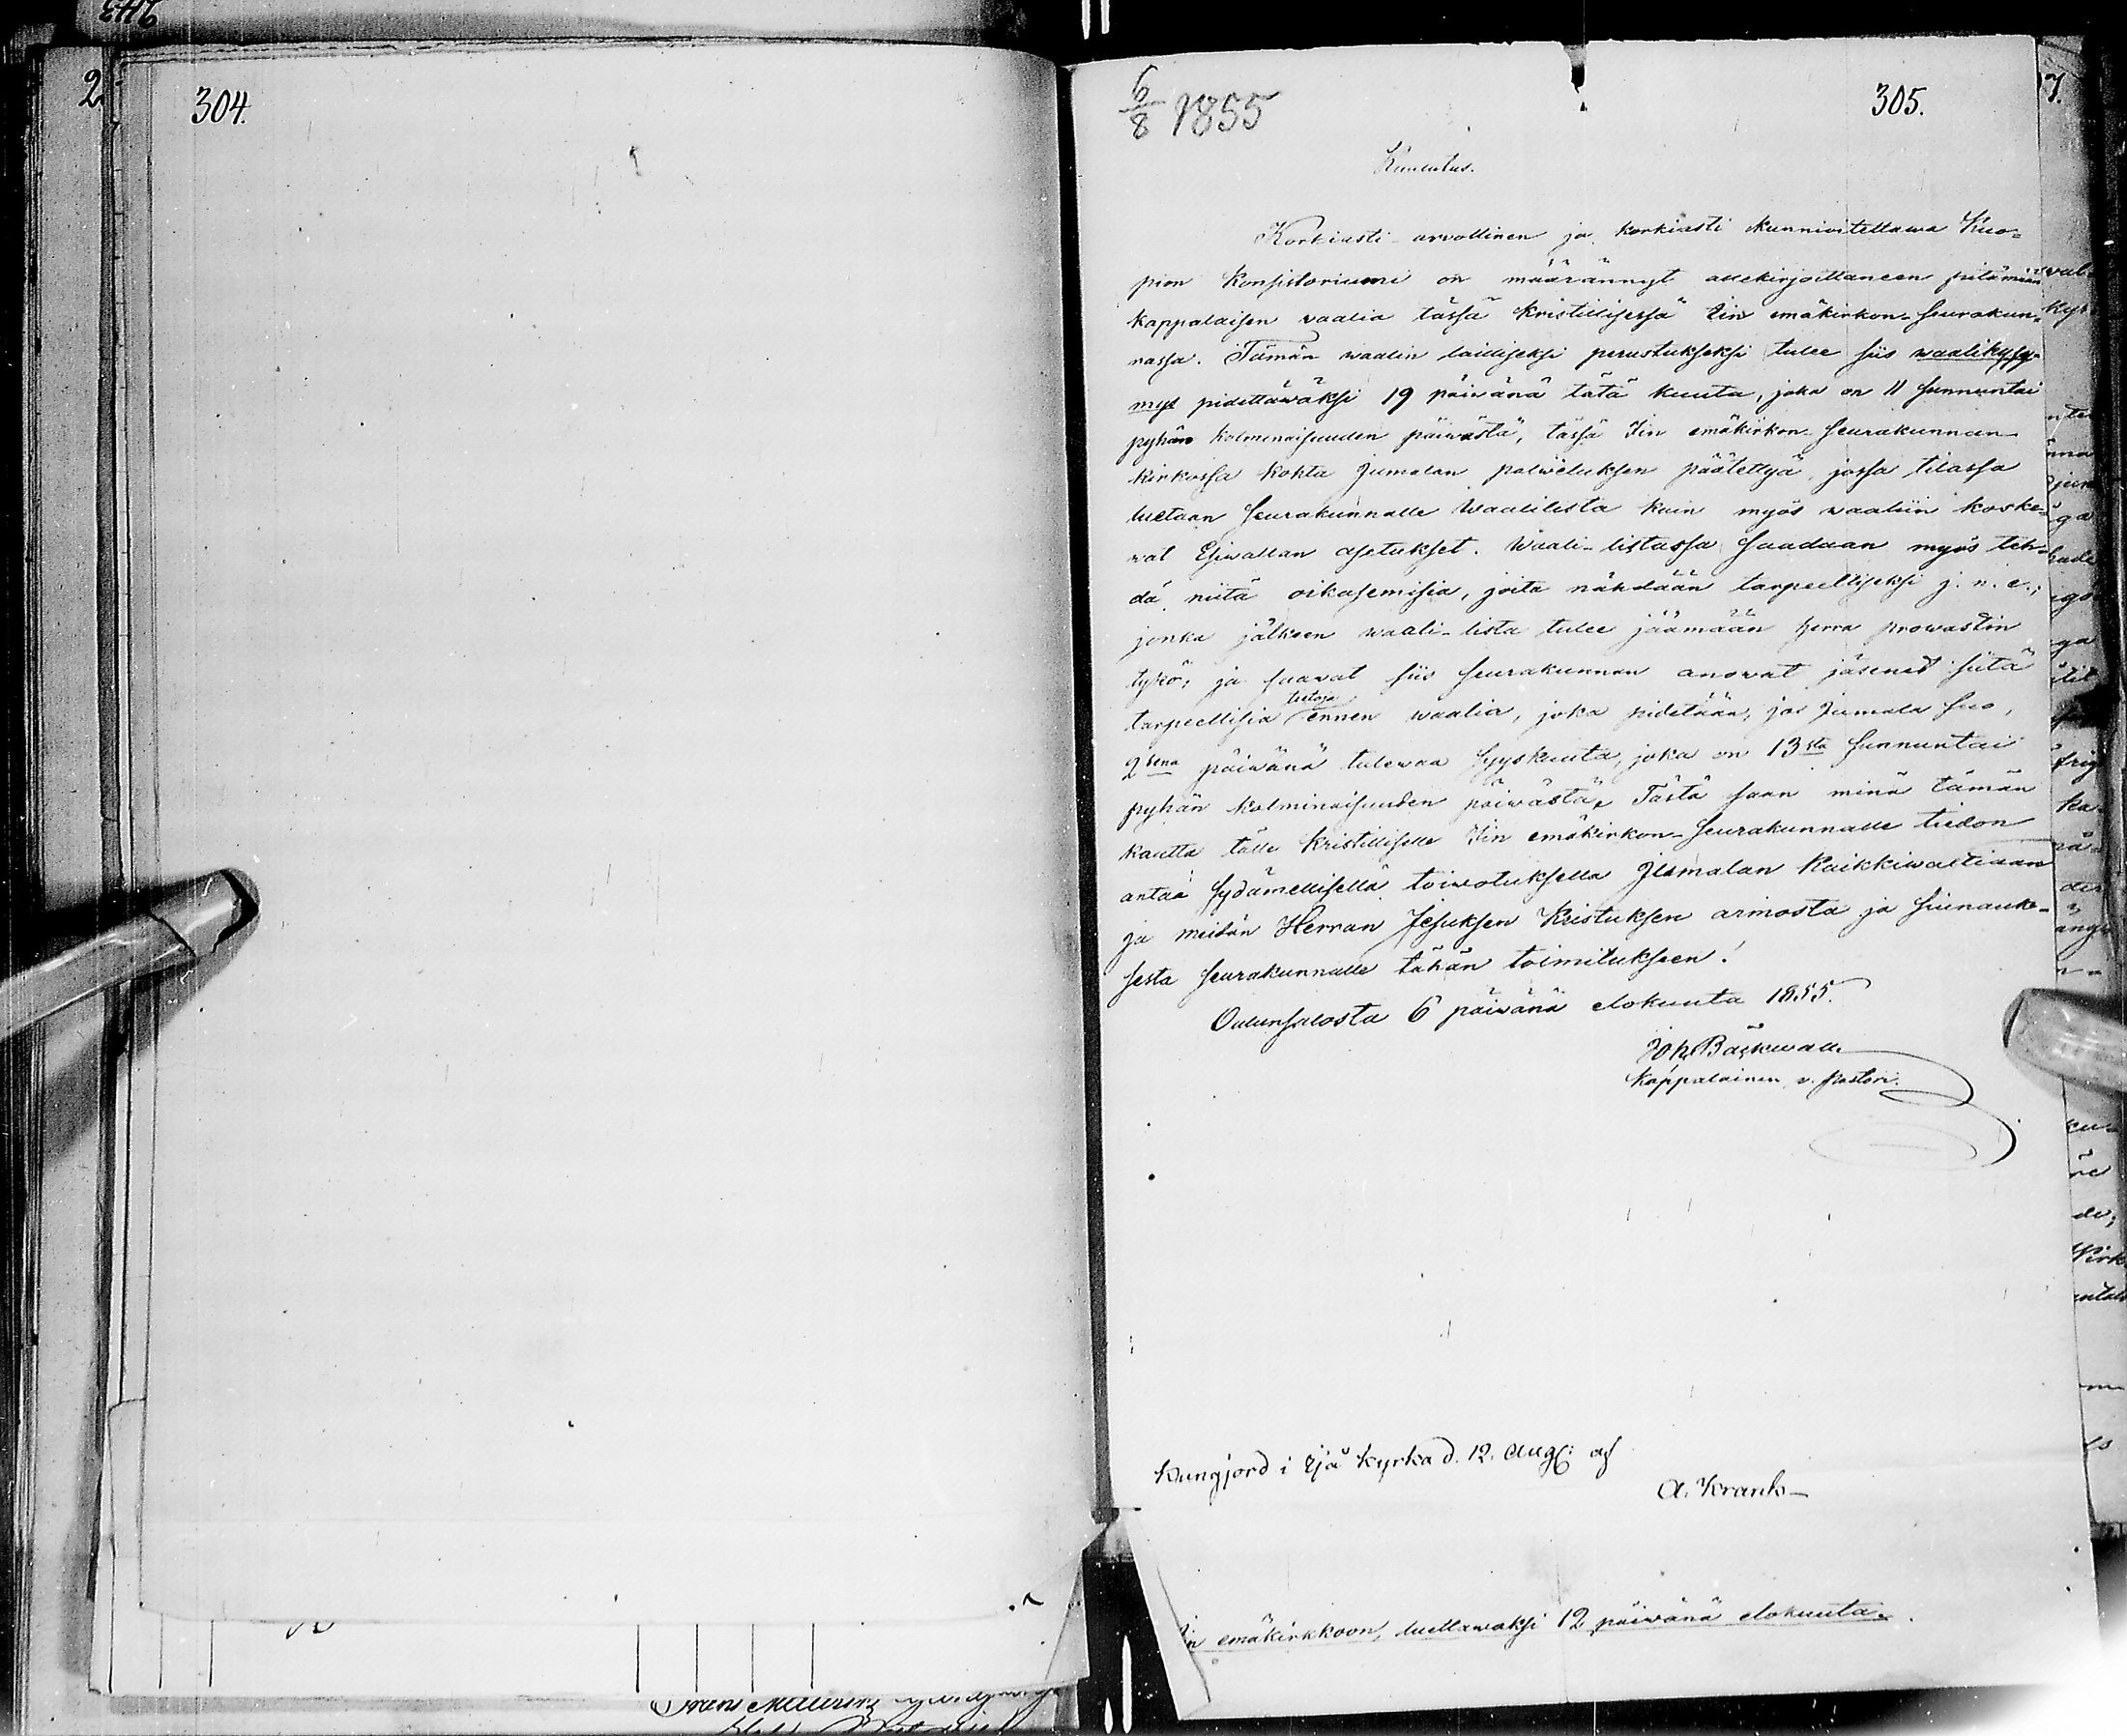 304.
6/8 1855
305.
Kuulutus.
Korkiasti arvollinen ja korkiasti kunnioitettawa Kuo-
pion Konsistoriumi on määrännyt allekirjoittaneen pitämään
kappalaisen vaalia tässä kristillisessä Iin emäkirkon-seurakun-
nassa. Tämän waalin laidiseksi perustukseksi tulee siis waalikysy-
mys pidettäwäksi 19 päiwänä tätä kuuta, joka on 11 sunnuntai
pyhän kolminaisuuden päiwästä, tässä Iin emäkirkon seurakunnan
kirkossa kohta Jumalan palweluksen päätettyä, jossa tilassa
luetaan seurakunnalle Waalilista kuin myös waaliin koske-
wat Esiwallan asetukset. Waali-listassa saadaan myös teh-
dä niitä oikasemisia, joita nähdään tarpeelliseksi j. n. e.;
jonka jälkeen waali-lista tulee jäämään herra prowastin
tykö, ja saawat siis seurakunnan anowat jäsenet siitä
tarpeellisia tietoja ennen waalia, joka pidetään, jos Jumala suo,
2sena päiwänä tulewaa Syyskuuta, joka on 13sta sunnuntai
pyhän kolminaisuuden päiwästä. Tästä saan minä tämän
kautta tälle kristilliselle Iin emäkirkon-seurakunnalle tiedon
antaa sydämellisellä toiwotuksella Jumalan Kaikkiwaltiaan
ja meidän Herran Jesuksen Kristuksen armosta ja siunauk-
sesta seurakunnalle tähän toimitukseen!
Oulunsalosta 6 päiwänä elokuuta 1855.
Joh. Bäckwall
Kappalainen, v. pastori.
Kungjord i Ijå kyrka d. 12. Aug. af
A. Krank
Iin emäkirkkoon, luettawaksi 12 päiwänä elokuuta.